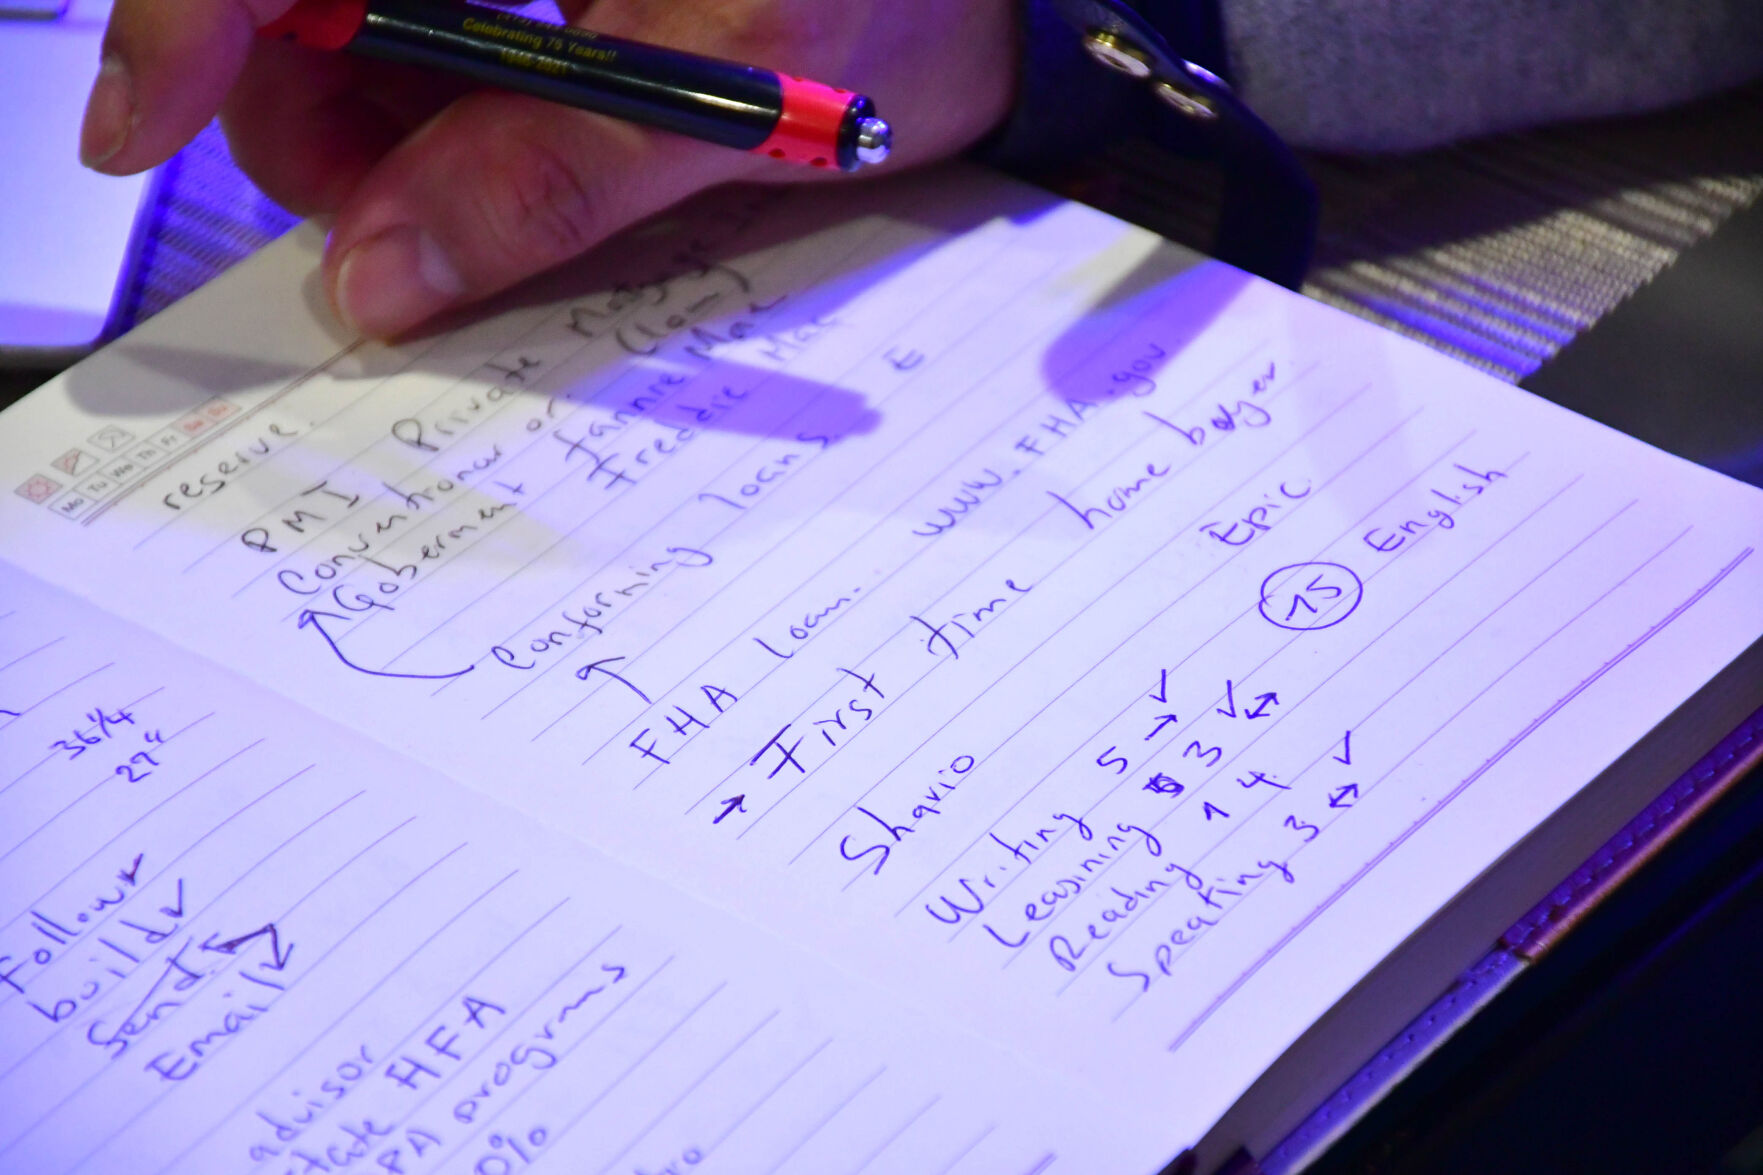 Celebrating 75 Years!!
1946-2021
Mo Tu We Th Fr Sa Su
reserve.
PMI Private
Conventionar or (loan)
Goberment Fannie Mae
Freddie Mac
Conforming loans E
FHA loan. www.FHA.gov
→ First time home buyer
Shario Epic
15 English
Writing 5 → ✓
Leasning 3 ✓ ↔
Reading 1 4
Speaking 3 ↔ ✓
36 1/4
27"
Follow
build
Send
Email
advisor
state HFA
PA programs
0%